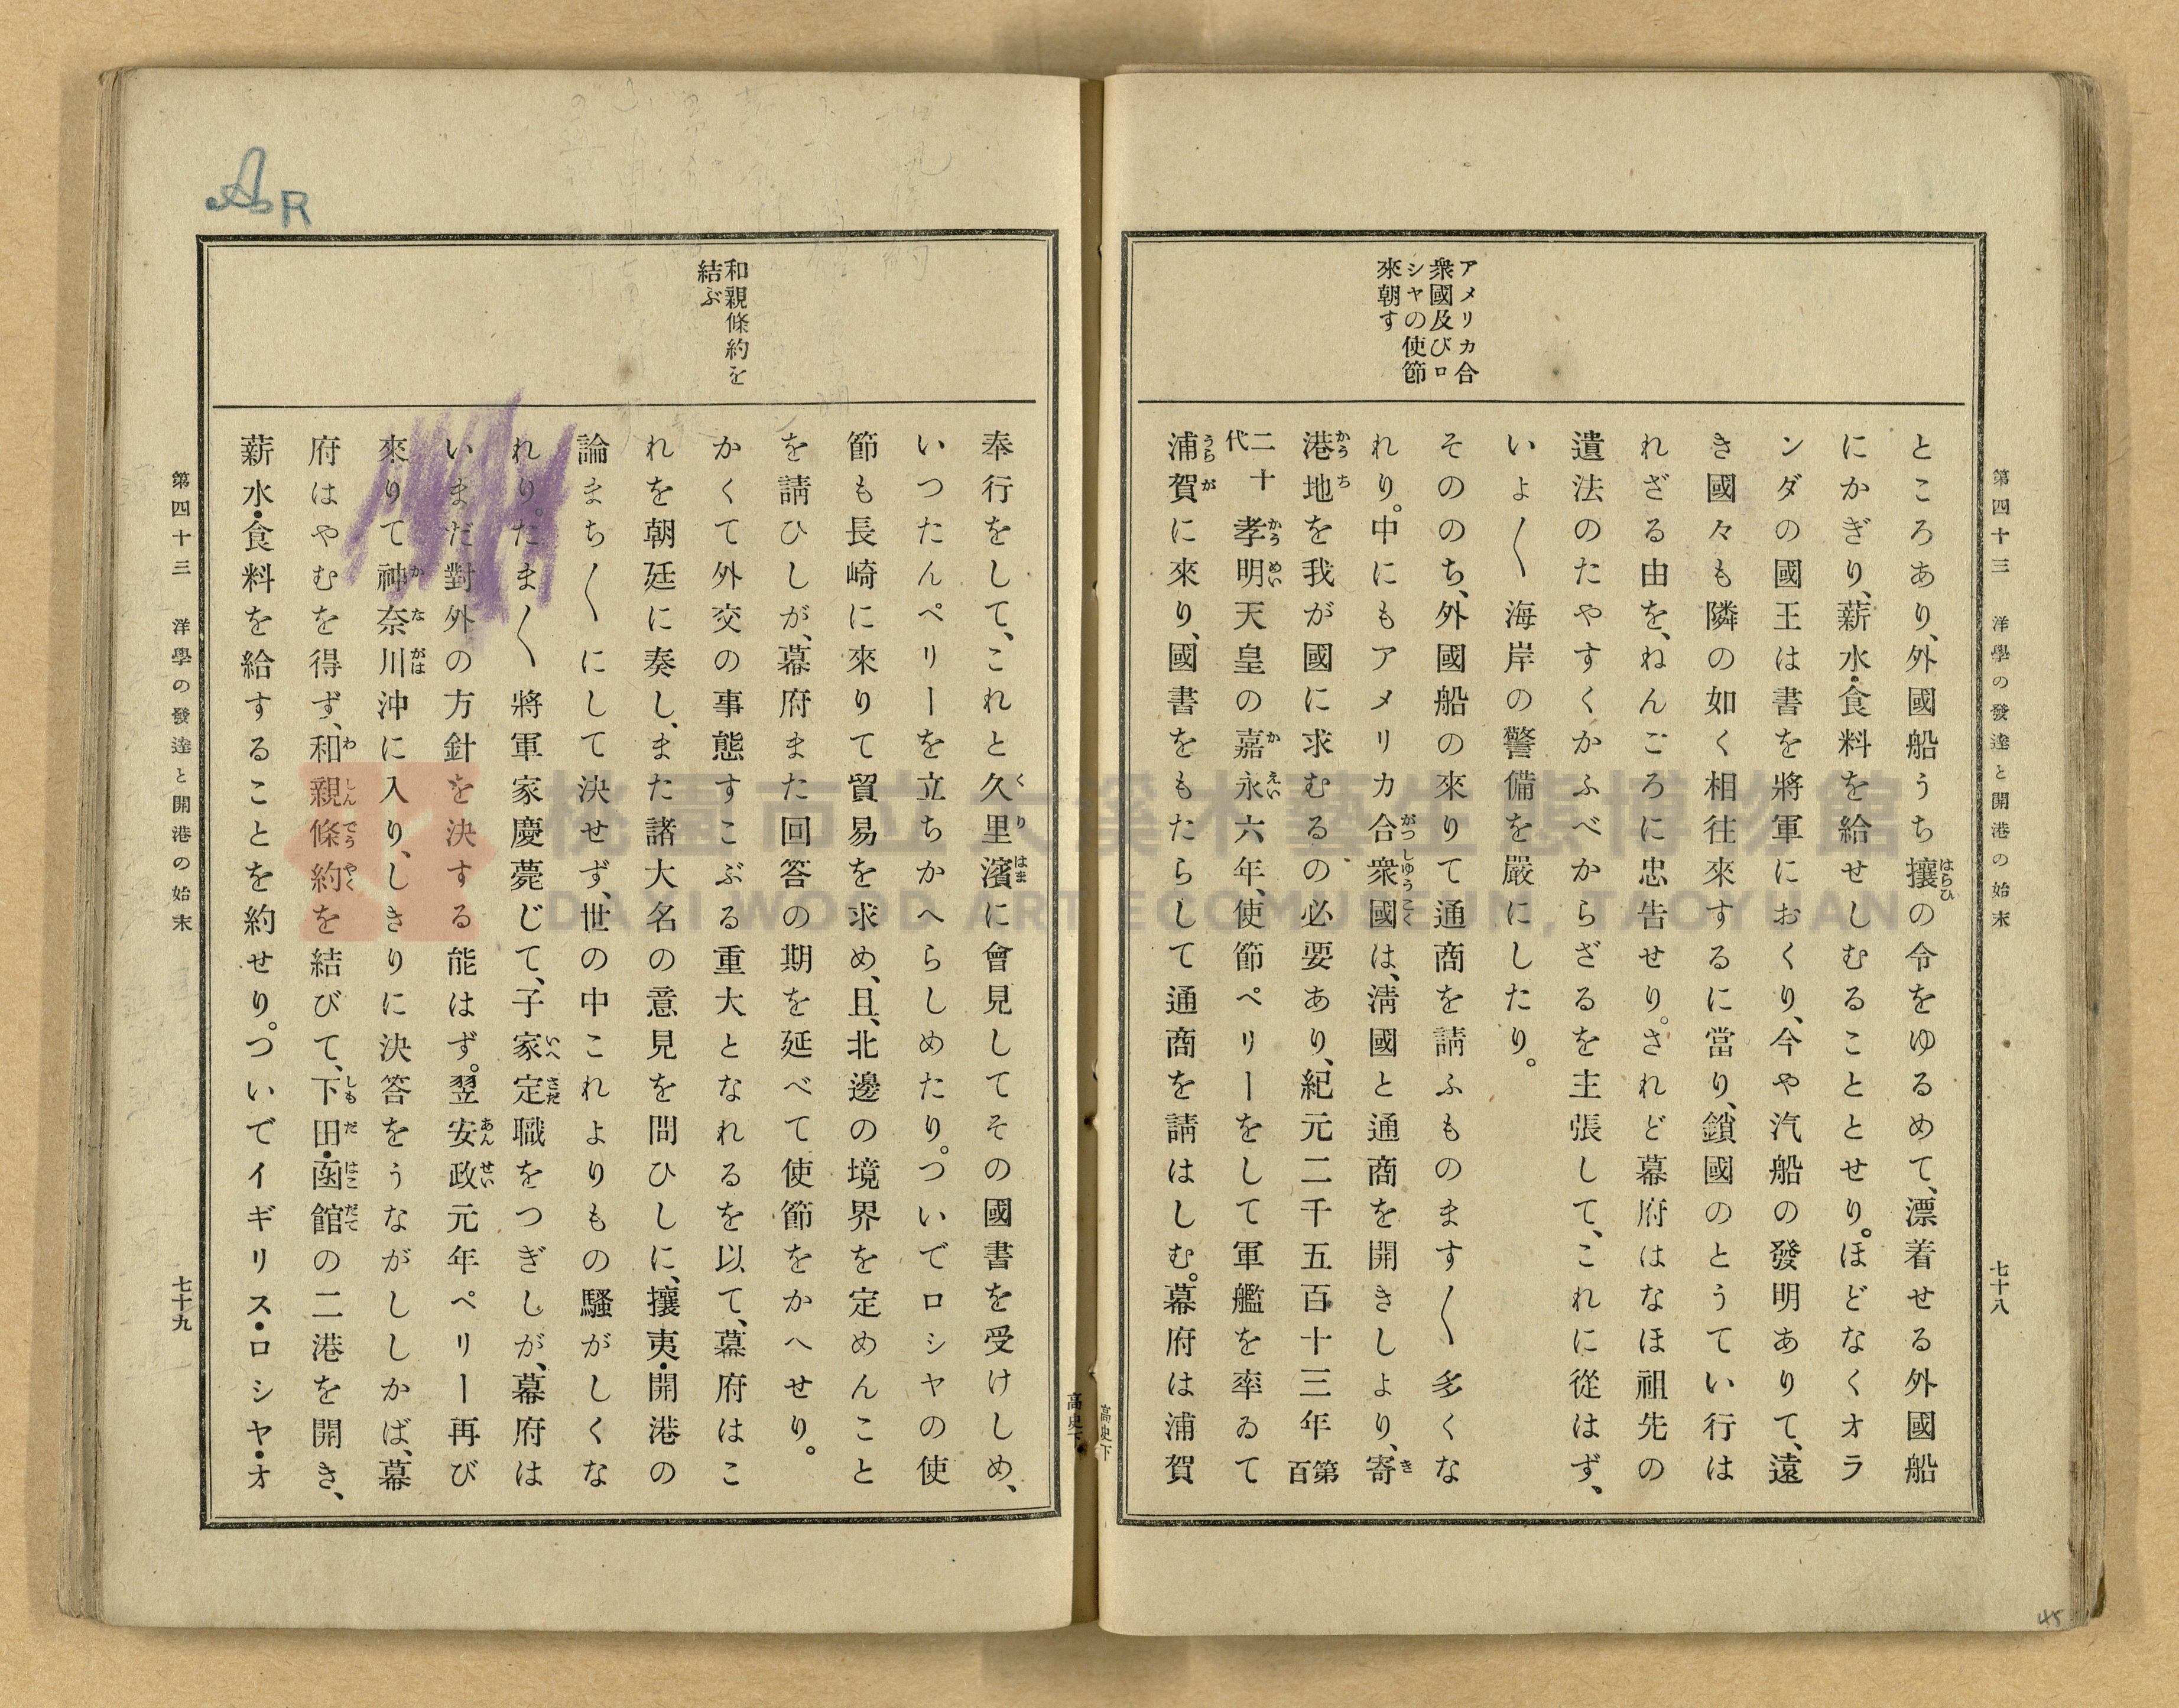 第四十三 洋學の發達と開港の始末 七十八
アメリカ合
衆國及びロ
シヤの使節
來朝す
ところあり、外國船うち攘の令をゆるめて、漂着せる外國船
にかぎり、薪水・食料を給せしむることとせり。ほどなくオラ
ンダの國王は書を將軍におくり、今や汽船の發明ありて、遠
き國々も隣の如く相往來するに當り、鎖國のとうてい行は
れざる由を、ねんごろに忠告せり。されど幕府はなほ祖先の
遺法のたやすくかふべからざるを主張して、これに從はず、
いよ〱海岸の警備を嚴にしたり。
そののち、外國船の來りて通商を請ふものます〱多くな
れり。中にもアメリカ合衆國は、淸國と通商を開きしより、寄
港地を我が國に求むるの必要あり、紀元二千五百十三年第百
二十代孝明天皇の嘉永六年、使節ペリーをして軍艦を率ゐて
浦賀に來り、國書をもたらして通商を請はしむ。幕府は浦賀
高史下
和親條約を
結ぶ
奉行をして、これと久里濱に會見してその國書を受けしめ、
いつたんペリーを立ちかへらしめたり。ついでロシヤの使
節も長崎に來りて貿易を求め、且、北邊の境界を定めんこと
を請ひしが、幕府また回答の期を延べて使節をかへせり。
かくて外交の事態すこぶる重大となれるを以て、幕府はこ
れを朝廷に奏し、また諸大名の意見を問ひしに、攘夷・開港の
論まち〱にして決せず、世の中これよりもの騷がしくな
れり。たま〱將軍家慶薨じて、子家定職をつぎしが、幕府は
いまだ對外の方針を決する能はず。翌安政元年ペリー再び
來りて神奈川沖に入り、しきりに決答をうながししかば、幕
府はやむを得ず、和親條約を結びて、下田・函館の二港を開き、
薪水・食料を給することを約せり。ついでイギリス・ロシヤ・オ
第四十三 洋學の發達と開港の始末 七十九
高史下
AR
45
DAXI WOOD ART ECOMUSEUM, TAOYUAN
桃園市立大溪木藝生態博物館